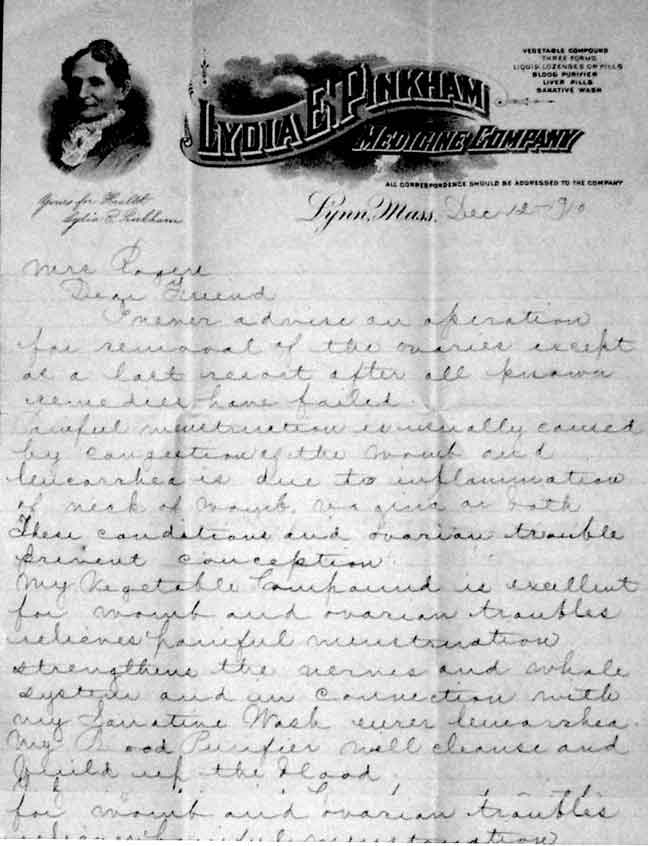 LYDIA E. PINKHAM
MEDICINE COMPANY
VEGETABLE COMPOUND
THREE FORMS
LIQUID, LOZENGES OR PILLS
BLOOD PURIFIER
LIVER PILLS
SANATIVE WASH
ALL CORRESPONDENCE SHOULD BE ADDRESSED TO THE COMPANY
Yours for Health
Lydia E. Pinkham
Lynn, Mass. Dec 12-
Mrs
Dear Friend
I never advise an operation
for removal of the ovaries except
as a last resort after all known
remedies have failed.
Painful menstruation is usually caused
by congestion of the womb and
leucorrhea is due to inflammation
of neck of womb, vagina or both
These conditions and ovarian trouble
prevent conception.
My Vegetable Compound is excellent
for womb and ovarian troubles
relieves painful menstruation
strengthens the nerves and whole
system and in connection with
my Sanative Wash cures leucorrhea.
My Blood Purifier will cleanse and
build up the blood.
for womb and ovarian troubles
relieves painful menstruation